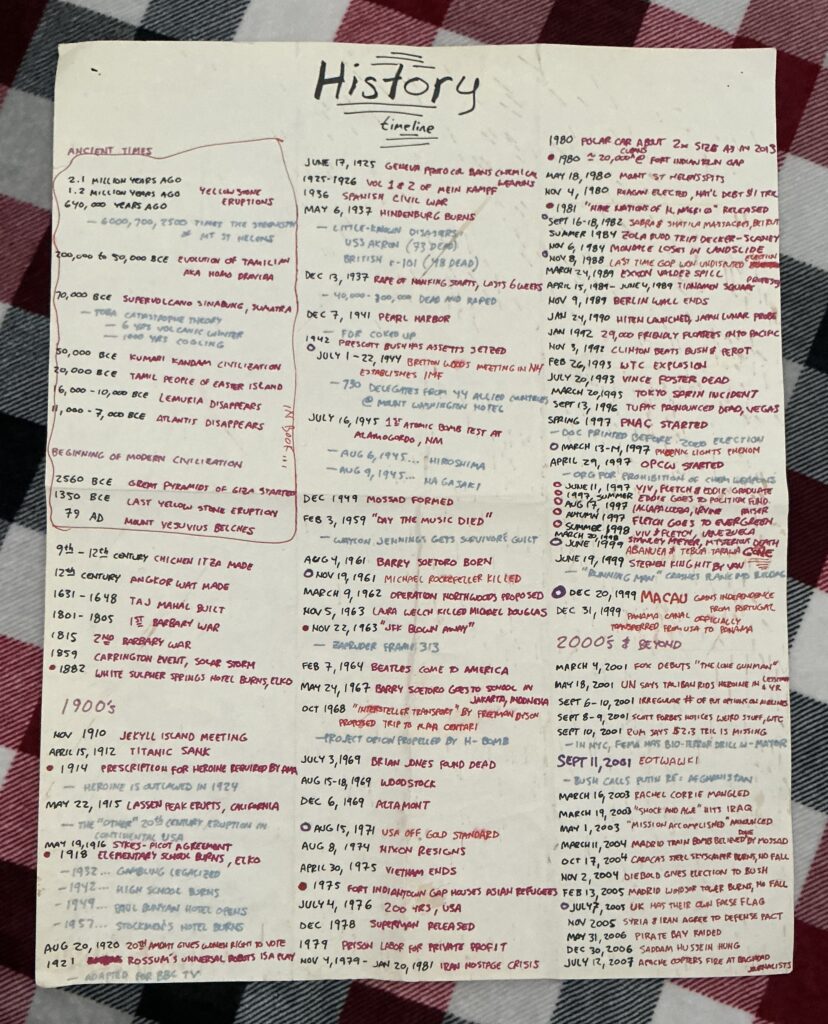 History
timeline
ANCIENT TIMES
2.1 MILLION YEARS AGO
1.2 MILLION YEARS AGO YELLOWSTONE
640,000 YEARS AGO ERUPTIONS
— 6000, 700, 2500 TIMES THE STRENGTH
OF MT ST HELENS
200,000 to 50,000 BCE EVOLUTION OF TAMILIAN
AKA HOMO DRAVIDA
70,000 BCE SUPERVOLCANO SINABUNG, SUMATRA
— TOBA CATASTROPHE THEORY
— 6 YRS VOLCANIC WINTER
— 1000 YRS COOLING
50,000 BCE KUMARI KANDAM CIVILIZATION
20,000 BCE TAMIL PEOPLE OF EASTER ISLAND
16,000 - 10,000 BCE LEMURIA DISAPPEARS
11,000 - 7,000 BCE ATLANTIS DISAPPEARS
IN BOOK!!!
BEGINNING OF MODERN CIVILIZATION
2560 BCE GREAT PYRAMIDS OF GIZA STARTED
1350 BCE LAST YELLOWSTONE ERUPTION
79 AD MOUNT VESUVIUS BELCHES
9th - 12th CENTURY CHICHEN ITZA MADE
12th CENTURY ANGKOR WAT MADE
1631 - 1648 TAJ MAHAL BUILT
1801 - 1805 1ST BARBARY WAR
1815 2ND BARBARY WAR
1859 CARRINGTON EVENT, SOLAR STORM
1882 WHITE SULPHER SPRINGS HOTEL BURNS, ELKO
1900's
NOV 1910 JEKYLL ISLAND MEETING
APRIL 15, 1912 TITANIC SANK
1914 PRESCRIPTION FOR HEROINE REQUIRED BY AMA
— HEROINE IS OUTLAWED IN 1924
MAY 22, 1915 LASSEN PEAK ERUPTS, CALIFORNIA
— THE "OTHER" 20TH CENTURY ERUPTION IN
CONTINENTAL USA
MAY 19, 1916 SYKES-PICOT AGREEMENT
1918 ELEMENTARY SCHOOL BURNS, ELKO
— 1932... GAMBLING LEGALIZED
— 1942... HIGH SCHOOL BURNS
— 1949... PAUL BUNYAN HOTEL OPENS
— 1957... STOCKMEN'S HOTEL BURNS
AUG 20, 1920 20TH AMDMT GIVES WOMEN RIGHT TO VOTE
1921 ROSSUM'S UNIVERSAL ROBOTS IS A PLAY
— ADAPTED FOR BBC TV
JUNE 17, 1925 GENEVA PROTOCOL BANS CHEMICAL
WEAPONS
1925-1926 VOL 1 & 2 OF MEIN KAMPF
1936 SPANISH CIVIL WAR
MAY 6, 1937 HINDENBURG BURNS
— LITTLE-KNOWN DISASTERS
USS AKRON (73 DEAD)
BRITISH R-101 (48 DEAD)
DEC 13, 1937 RAPE OF NANKING STARTS, LASTS 6 WEEKS
— 40,000 - 300,000 DEAD AND RAPED
DEC 7, 1941 PEARL HARBOR
— FDR COKED UP
1942 PRESCOTT BUSH HAS ASSETTS SEIZED
JULY 1 - 22, 1944 BRETTON WOODS MEETING IN NH
ESTABLISHES IMF
— 730 DELEGATES FROM 44 ALLIED COUNTRIES
@ MOUNT WASHINGTON HOTEL
JULY 16, 1945 1ST ATOMIC BOMB TEST AT
ALAMOGORDO, NM
— AUG 6, 1945... HIROSHIMA
— AUG 9, 1945... NAGASAKI
DEC 1949 MOSSAD FORMED
FEB 3, 1959 "DAY THE MUSIC DIED"
— WAYLON JENNINGS GETS SURVIVORS GUILT
AUG 4, 1961 BARRY SOETORO BORN
NOV 19, 1961 MICHAEL ROCKEFELLER KILLED
MARCH 9, 1962 OPERATION NORTHWOODS PROPOSED
NOV 5, 1963 LARA WELCH KILLED MICHAEL DOUGLAS
NOV 22, 1963 "JFK BLOWN AWAY"
— ZAPRUDER FRAME 313
FEB 7, 1964 BEATLES COME TO AMERICA
MAY 24, 1967 BARRY SOETORO GOES TO SCHOOL IN
JAKARTA, INDONESIA
OCT 1968 "INTERSTELLER TRANSPORT" BY FREEMAN DYSON
PROPOSED TRIP TO ALPHA CENTARI
— PROJECT ORION PROPELLED BY H-BOMB
JULY 3, 1969 BRIAN JONES FOUND DEAD
AUG 15-18, 1969 WOODSTOCK
DEC 6, 1969 ALTAMONT
AUG 15, 1971 USA OFF GOLD STANDARD
AUG 8, 1974 NIXON RESIGNS
APRIL 30, 1975 VIETNAM ENDS
1975 FORT INDIANTOWN GAP HOUSES ASIAN REFUGEES
JULY 4, 1976 200 YRS, USA
DEC 1978 SUPERMAN RELEASED
1979 PRISON LABOR FOR PRIVATE PROFIT
NOV 4, 1979 - JAN 20, 1981 IRAN HOSTAGE CRISIS
1980 POLAR CAP ABOUT 2x SIZE AS IN 2013
1980 ≈ 20,000 CUBANS @ FORT INDIANTOWN GAP
MAY 18, 1980 MONT ST HELENS SPITS
NOV 4, 1980 REAGAN ELECTED, NAT'L DEBT $1 TRIL
1981 RELEASED
SEPT 16-18, 1982 SABRA & SHATILA MASSACRES, BEIRUT
SUMMER 1984 ZOLA BUDD TRIPS DECKER-SLANEY
NOV 6, 1984 MONDALE LOSES IN LANDSLIDE
NOV 8, 1988 LAST TIME GOP WON UNDISPUTED ELECTION
MARCH 24, 1989 EXXON VALDEZ SPILL
APRIL 15, 1989 - JUNE 4, 1989 TIANAMEN SQUARE PROTESTS
NOV 9, 1989 BERLIN WALL ENDS
JAN 24, 1990 HITEN LAUNCHED, JAPAN LUNAR PROBE
JAN 1992 29,000 FRIENDLY FLOATEES INTO PACIFIC
NOV 3, 1992 CLINTON BEATS BUSH & PEROT
FEB 26, 1993 WTC EXPLOSION
JULY 20, 1993 VINCE FOSTER DEAD
MARCH 20, 1995 TOKYO SARIN INCIDENT
SEPT 13, 1996 TUPAC PRONOUNCED DEAD, VEGAS
SPRING 1997 PNAC STARTED
— DOC PRINTED BEFORE 2000 ELECTION
MARCH 13-14, 1997 PHOENIX LIGHTS PHENOM
APRIL 29, 1997 OPCW STARTED
— ORG FOR PROHIBITION OF CHEM WEAPONS
JUNE 11, 1997 VIV, FLETCH & EDDIE GRADUATE
1997, SUMMER EDDIE GOES TO POLITICAL FUND
RAISER
AUG 17, 1997 IRVINE
AUTUMN 1997 FLETCH GOES TO EVERGREEN
SUMMER 1998 VIV & FLETCH, VENEZUELA
MARCH 20, 1998 STANLEY MEYER, MYSTERIOUS DEATH
JUNE 1999 ABANUEA & TEBUA TARAWA GONE
JUNE 19, 1999 STEPHEN KING HIT BY VAN
— "RUNNING MAN" CRASHES PLANE INTO BUILDING
DEC 20, 1999 MACAU GAINS INDEPENDENCE
FROM PORTUGAL
DEC 31, 1999 PANAMA CANAL OFFICIALLY
TRANSFERRED FROM USA TO PANAMA
2000's & BEYOND
MARCH 4, 2001 FOX DEBUTS "THE LONE GUNMAN"
MAY 18, 2001 UN SAYS TALIBAN RIDS HEROINE IN LESS THAN
A YR
SEPT 6-10, 2001 IRREGULAR # OF PUT OPTIONS ON AIRLINES
SEPT 8-9, 2001 SCOTT FORBES NOTICES WEIRD STUFF, WTC
SEPT 10, 2001 RUM SAYS $2.3 TRIL IS MISSING
— IN NYC, FEMA HAS BIO-TERROR DRILL W-MAYOR
SEPT 11, 2001 EOTWAWKI
— BUSH CALLS PUTIN RE: AFGHANISTAN
MARCH 16, 2003 RACHEL CORRIE MANGLED
MARCH 19, 2003 "SHOCK AND AWE" HITS IRAQ
MAY 1, 2003 "MISSION ACCOMPLISHED" ANNOUNCED
MARCH 11, 2004 MADRID TRAIN BOMB BELIEVED DONE BY MOSSAD
OCT 17, 2004 CARACAS STEEL SKYSCRAPER BURNS, NO FALL
NOV 2, 2004 DIEBOLD GIVES ELECTION TO BUSH
FEB 13, 2005 MADRID WINDSOR TOWER BURNS, NO FALL
JULY 7, 2005 UK HAS THEIR OWN FALSE FLAG
NOV 2005 SYRIA & IRAN AGREE TO DEFENSE PACT
MAY 31, 2006 PIRATE BAY RAIDED
DEC 30, 2006 SADDAM HUSSEIN HUNG
JULY 12, 2007 APACHE COPTERS FIRE AT BAGHDAD
JOURNALISTS